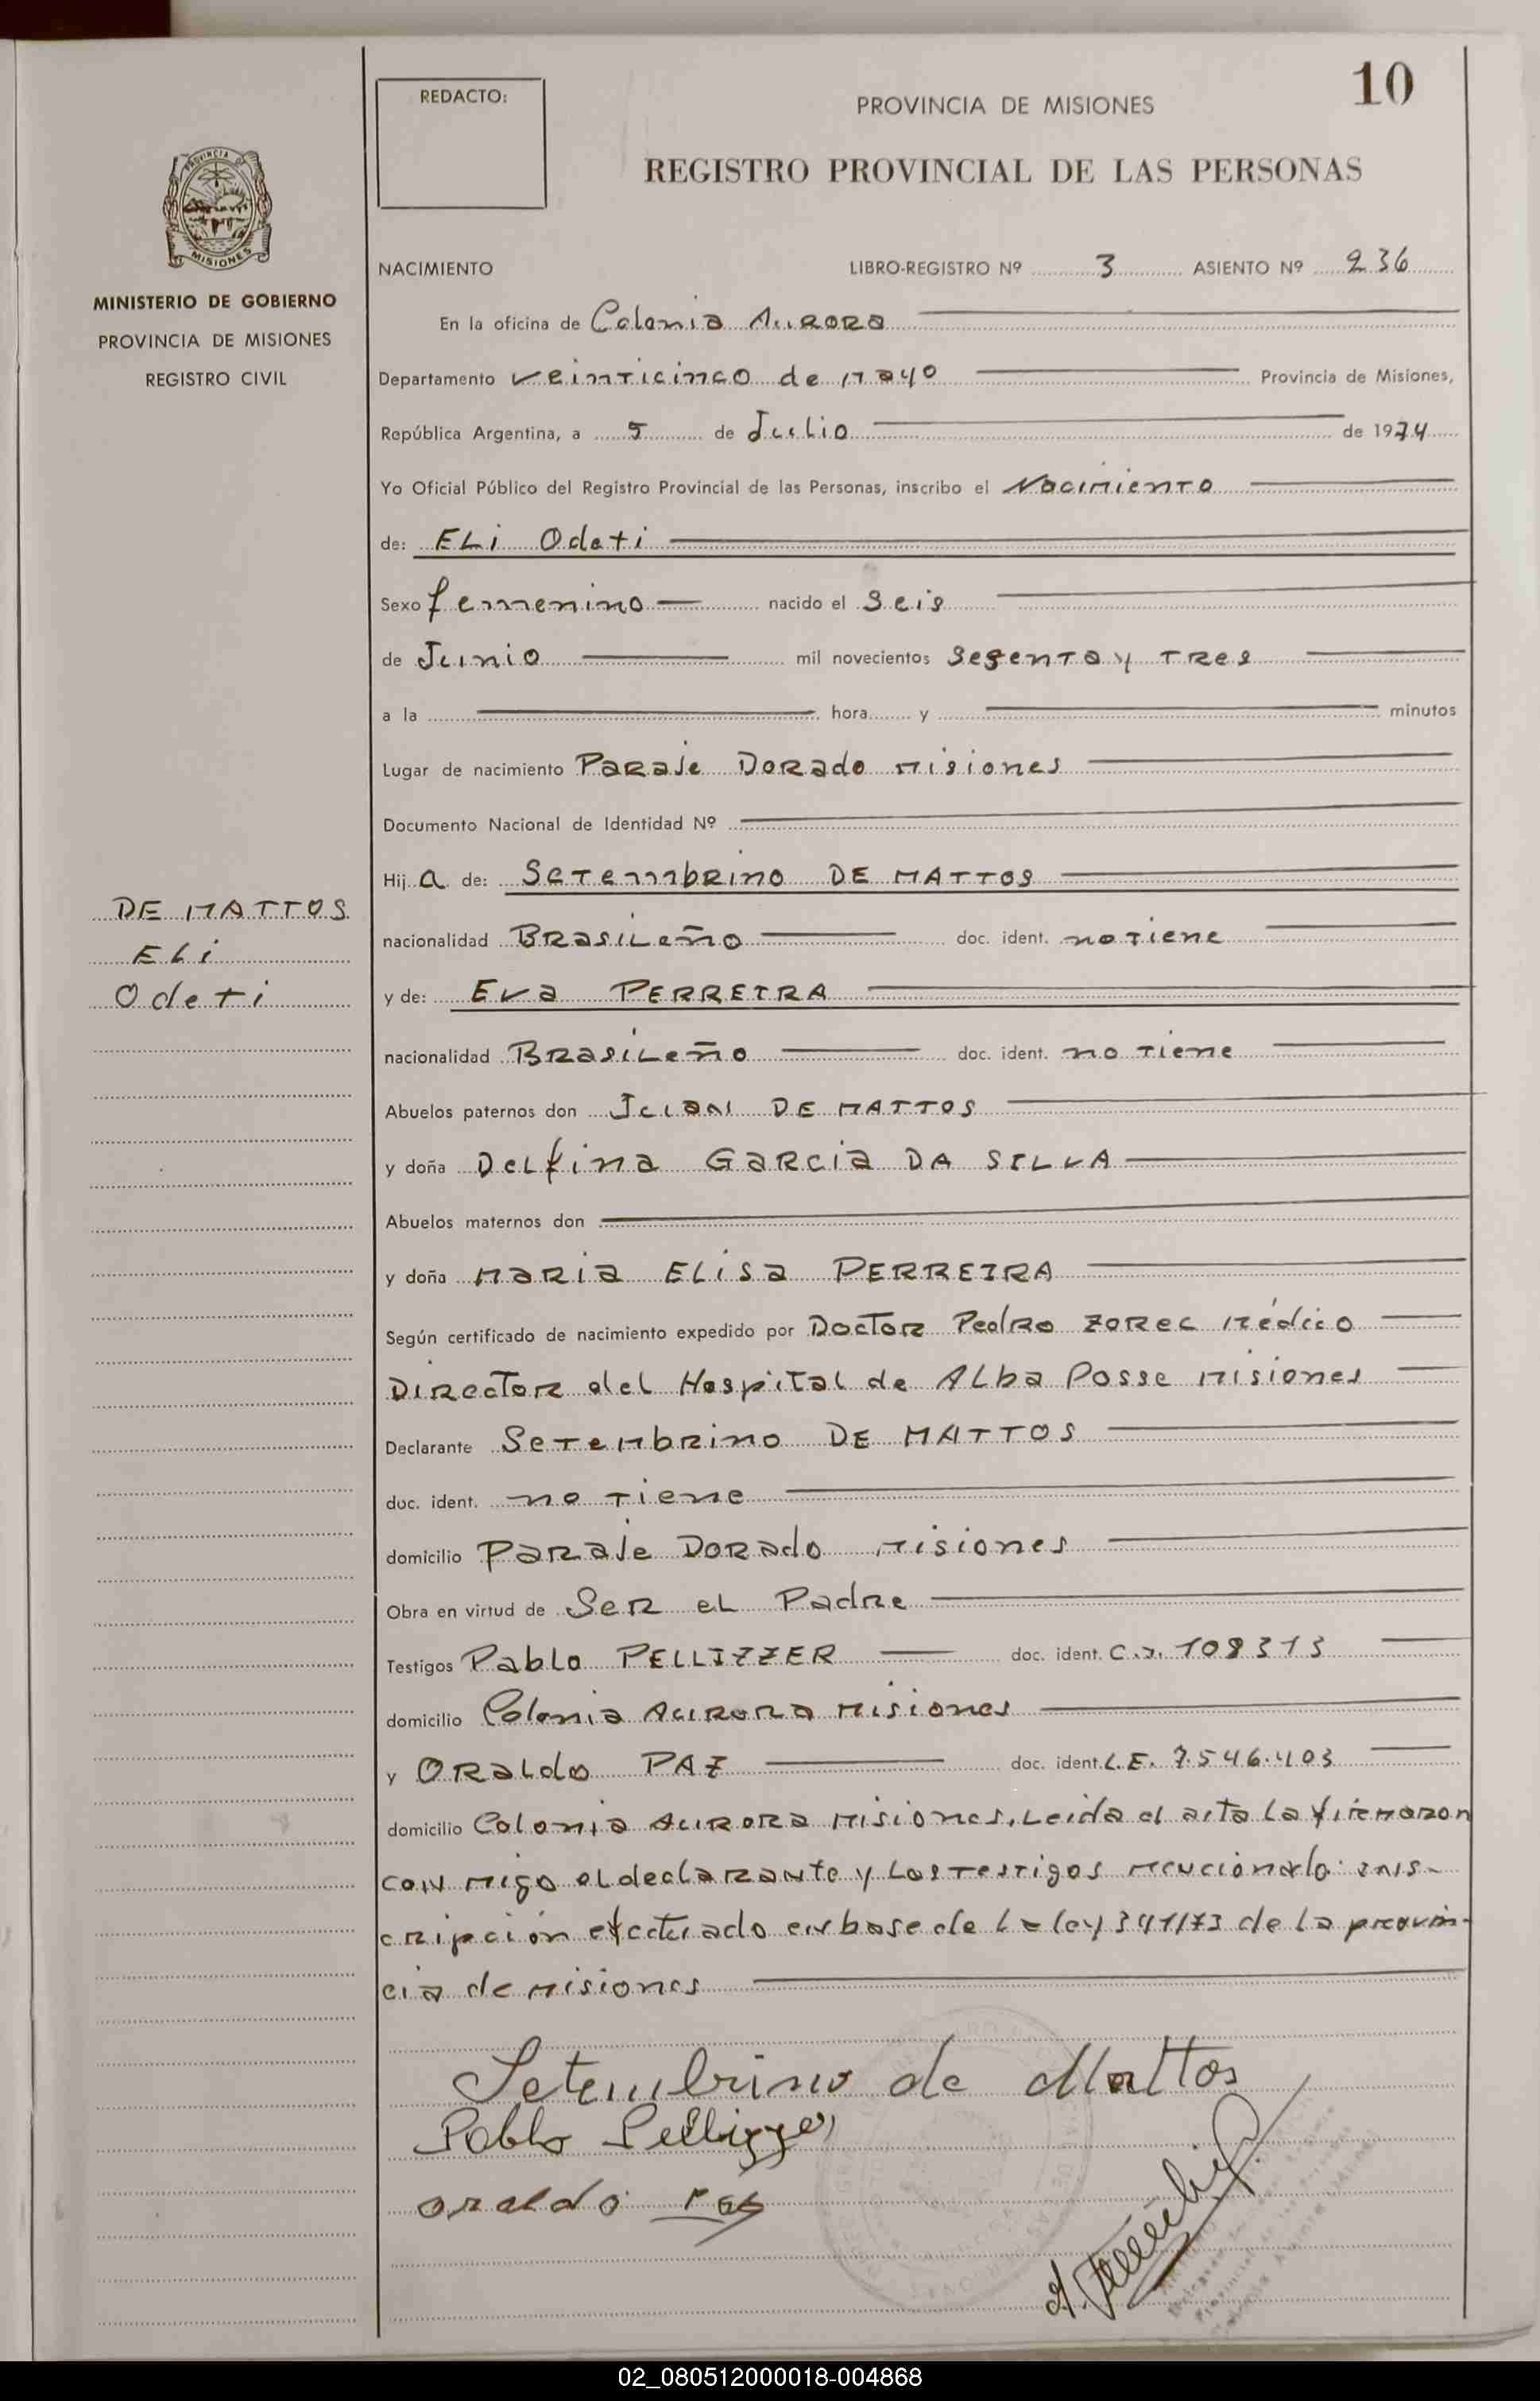 10
REDACTO:
PROVINCIA DE MISIONES
REGISTRO PROVINCIAL DE LAS PERSONAS
PROVINCIA DE
MISIONES
MINISTERIO DE GOBIERNO
PROVINCIA DE MISIONES
REGISTRO CIVIL
NACIMIENTO LIBRO-REGISTRO Nº 3 ASIENTO Nº 236
En la oficina de Colonia Aurora
Departamento veinticinco de Mayo Provincia de Misiones,
República Argentina, a 5 de Julio de 1974
Yo Oficial Público del Registro Provincial de las Personas, inscribo el Nacimiento
de: ELi Odeti
Sexo femenino nacido el Seis
de Junio mil novecientos Sesenta y Tres
a la hora y minutos
Lugar de nacimiento Paraje Dorado Misiones
Documento Nacional de Identidad Nº
Hij a de: Setembrino DE MATTOS
DE MATTOS
ELi
Odeti
nacionalidad BRasiLeño doc. ident. no Tiene
y de: Eva PERREIRA
nacionalidad BRasiLeño doc. ident. no Tiene
Abuelos paternos don Juan DE MATTOS
y doña DeLfina GaRcia DA SILVA
Abuelos maternos don
y doña MaRia ELisa PERREIRA
Según certificado de nacimiento expedido por Doctor Pedro Zorec Médico
Director del Hospital de Alba Posse Misiones
Declarante Setembrino DE MATTOS
doc. ident. no Tiene
domicilio Paraje Dorado Misiones
Obra en virtud de Ser el Padre
Testigos Pablo PELLIZZER doc. ident. C.I. 108313
domicilio Colonia Aurora Misiones
y ORaLdo PAZ doc. ident. L.E. 7.546.403
domicilio Colonia Aurora Misiones, Leida el acta la firmaron
con migo el declarante y los testigos mencionado: ins-
cripción efectuado en base de la ley 341/73 de la provin-
cia de Misiones
Setembrino de Mattos
Pablo Pellizzer
oraldo Paz
02_080512000018-004868